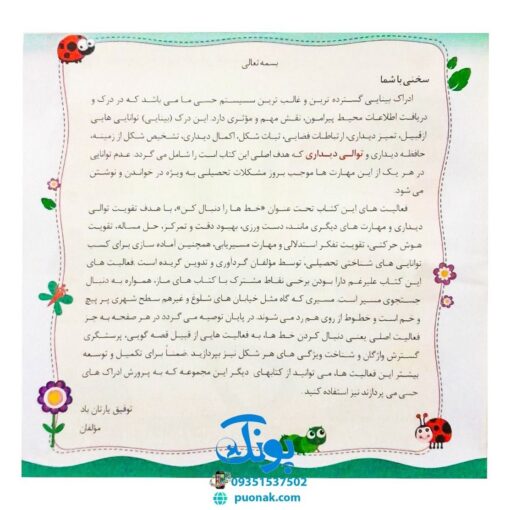 بسمه تعالی
سخنی با شما
ادراک بینایی گسترده ترین و غالب ترین سیستم حسی ما می باشد که در درک و
دریافت اطلاعات محیط پیرامون، نقش مهم و مؤثری دارد. این درک (بینایی) توانایی هایی
ازقبیل، تمیز دیداری، ارتباطات فضایی، ثبات شکل، اکمال دیداری، تشخیص شکل از زمینه،
حافظه دیداری و توالی دیداری که هدف اصلی این کتاب است را شامل می گردد. عدم توانایی
در هر یک از این مهارت ها موجب بروز مشکلات تحصیلی به ویژه در خواندن و نوشتن
می شود.
فعالیت های این کتاب تحت عنوان «خط ها را دنبال کن»، با هدف تقویت توالی
دیداری و مهارت های دیگری مانند، دست ورزی، بهبود دقت و تمرکز، حل مساله، تقویت
هوش حرکتی، تقویت تفکر استدلالی و مهارت مسیریابی، همچنین آماده سازی برای کسب
توانایی های شناختی تحصیلی، توسط مؤلفان گردآوری و تدوین گریده است. فعالیت های
این کتاب علیرغم دارا بودن برخی نقاط مشترک با کتاب های ماز، همواره به دنبال
جستجوی مسیر است. مسیری که گاه مثل خیابان های شلوغ و غیرهم سطح شهری پر پیچ
و خم است و خطوط از روی هم رد می شوند. در پایان توصیه می گردد در هر صفحه به جز
فعالیت اصلی یعنی دنبال کردن خط ها، به فعالیت هایی از قبیل قصه گویی، پرسشگری
گسترش واژگان و شناخت ویژگی های هر شکل نیز بپردازید. ضمناً برای تکمیل و توسعه
بیشتر این فعالیت ها، می توانید از کتابهای دیگر این مجموعه که به پرورش ادراک های
حسی می پردازند نیز استفاده کنید.
توفیق یارتان باد
مؤلفان
پونک
09351537502
puonak.com